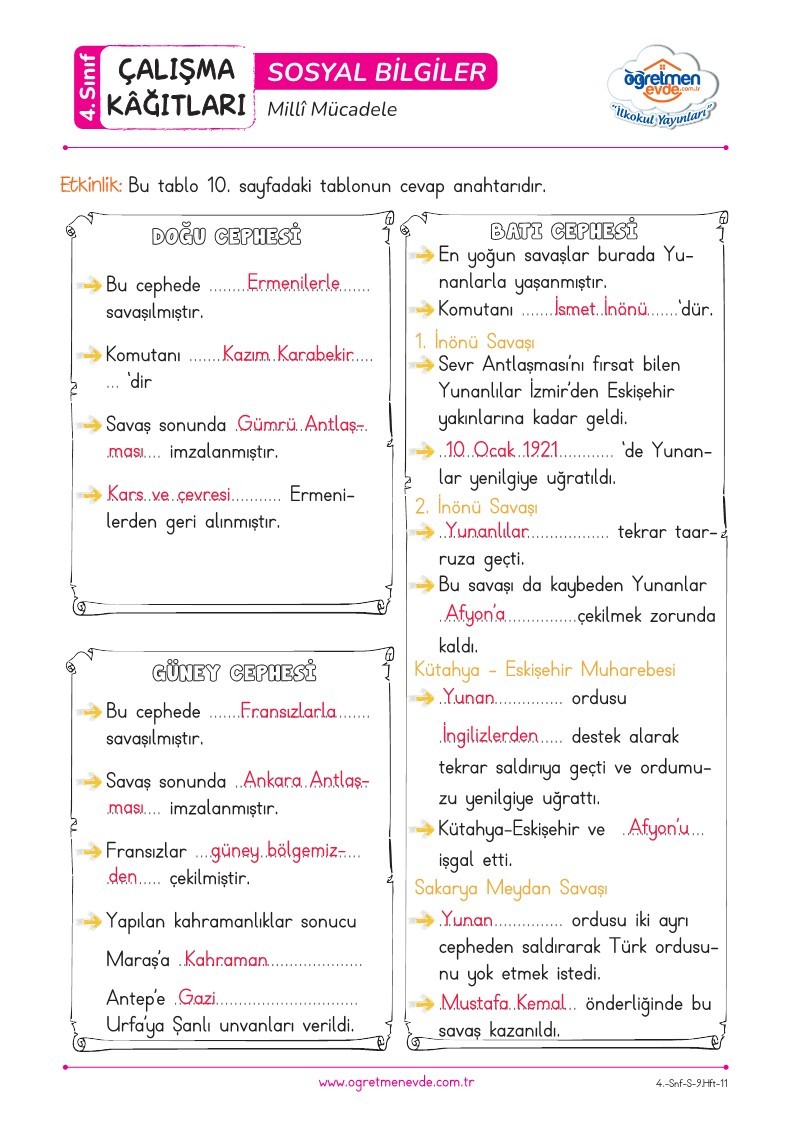 4. Sınıf
ÇALIŞMA
KÂĞITLARI
SOSYAL BİLGİLER
Millî Mücadele
öğretmen
evde.com.tr
"İlkokul Yayınları"
Etkinlik: Bu tablo 10. sayfadaki tablonun cevap anahtarıdır.
DOĞU CEPHESİ
Bu cephede ........Ermenilerle.......
savaşılmıştır.
Komutanı .......Kazım Karabekir.....
... 'dir
Savaş sonunda .Gümrü Antlaş-.
ması.... imzalanmıştır.
Kars ve çevresi........... Ermeni-
lerden geri alınmıştır.
GÜNEY CEPHESİ
Bu cephede .......Fransızlarla.......
savaşılmıştır.
Savaş sonunda ..Ankara Antlaş-
ması.... imzalanmıştır.
Fransızlar ....güney bölgemiz-....
den..... çekilmiştir.
Yapılan kahramanlıklar sonucu
Maraş'a .Kahraman...................
Antep'e .Gazi.............................
Urfa'ya Şanlı unvanları verildi.
BATI CEPHESİ
En yoğun savaşlar burada Yu-
nanlarla yaşanmıştır.
Komutanı .......İsmet İnönü.......'dür.
1. İnönü Savaşı
Sevr Antlaşması'nı fırsat bilen
Yunanlılar İzmir'den Eskişehir
yakınlarına kadar geldi.
..10 Ocak 1921............ 'de Yunan-
lar yenilgiye uğratıldı.
2. İnönü Savaşı
..Yunanlılar................. tekrar taar-
ruza geçti.
Bu savaşı da kaybeden Yunanlar
.Afyon'a ...............çekilmek zorunda
kaldı.
Kütahya - Eskişehir Muharebesi
.Yunan............... ordusu
.İngilizlerden..... destek alarak
tekrar saldırıya geçti ve ordumu-
zu yenilgiye uğrattı.
Kütahya-Eskişehir ve ..Afyon'u...
işgal etti.
Sakarya Meydan Savaşı
.Yunan............... ordusu iki ayrı
cepheden saldırarak Türk ordusu-
nu yok etmek istedi.
Mustafa Kemal.. önderliğinde bu
savaş kazanıldı.
www.ogretmenevde.com.tr
4.-Snf-S-9.Hft-11